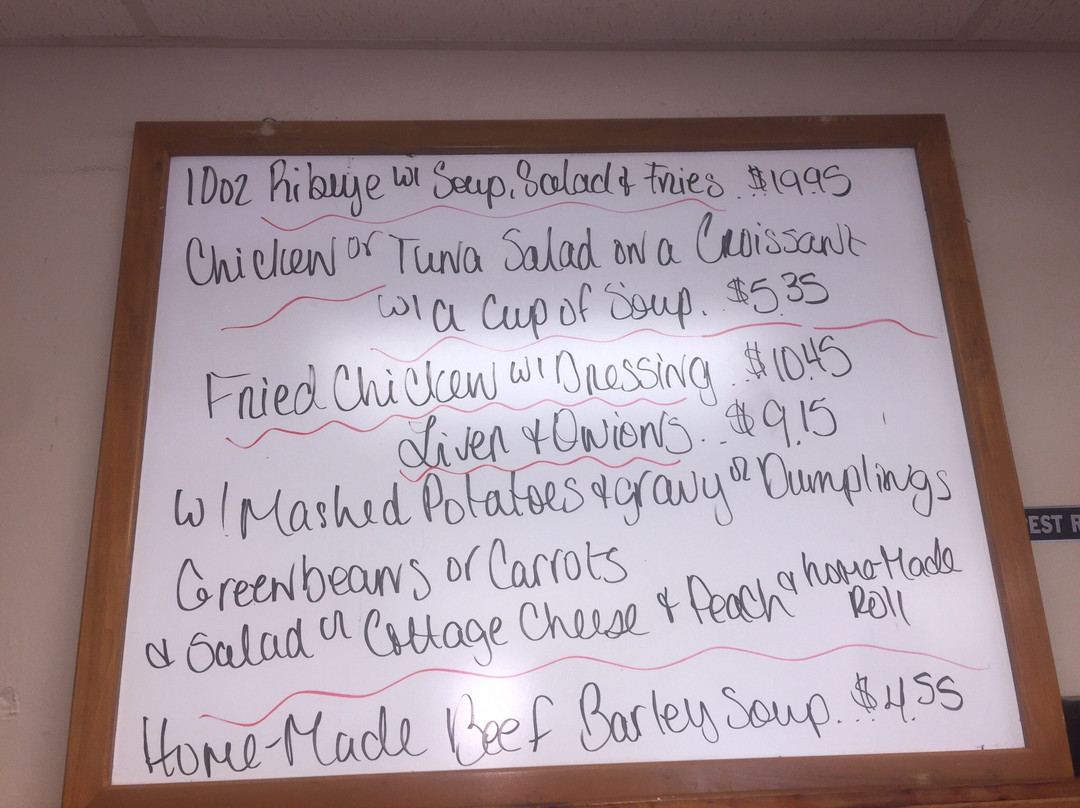 10oz Ribeye w/ Soup, Salad & Fries. $19.95
Chicken or Tuna Salad on a Croissant
w/ a Cup of Soup. $5.35
Fried Chicken w/ Dressing.. $10.45
Liver & Onions... $9.15
w/ Mashed Potatoes & gravy or Dumplings
Greenbeans or Carrots
& Salad or Cottage Cheese & Peach & home-Made
Roll
Home-Made Beef Barley Soup.. $4.55
EST R